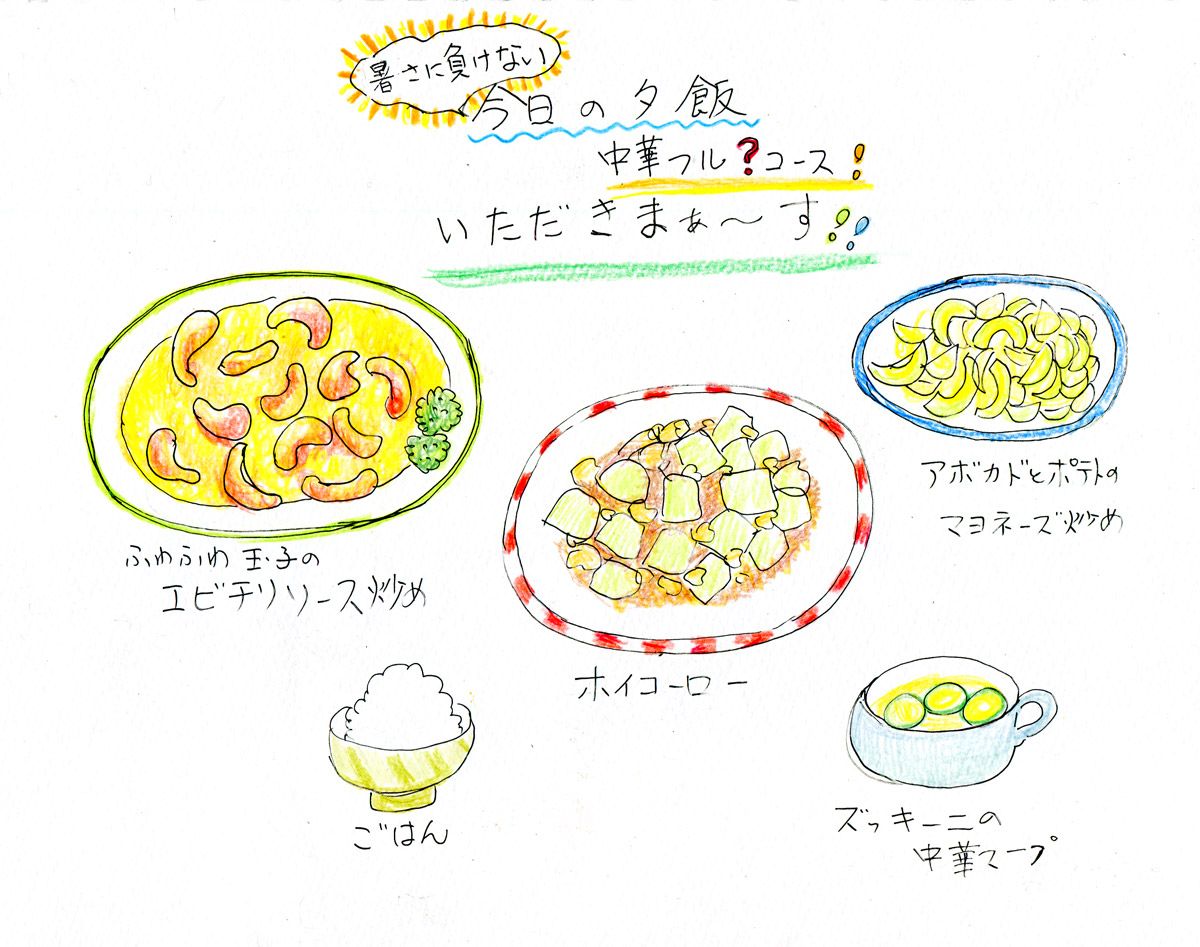 暑さに負けない
今日の夕飯
中華フル?コース!
いただきまぁ〜す!!
ふわふわ玉子の
エビチリソース炒め
アボカドとポテトの
マヨネーズ炒め
ホイコーロー
ごはん
ズッキーニの
中華スープ